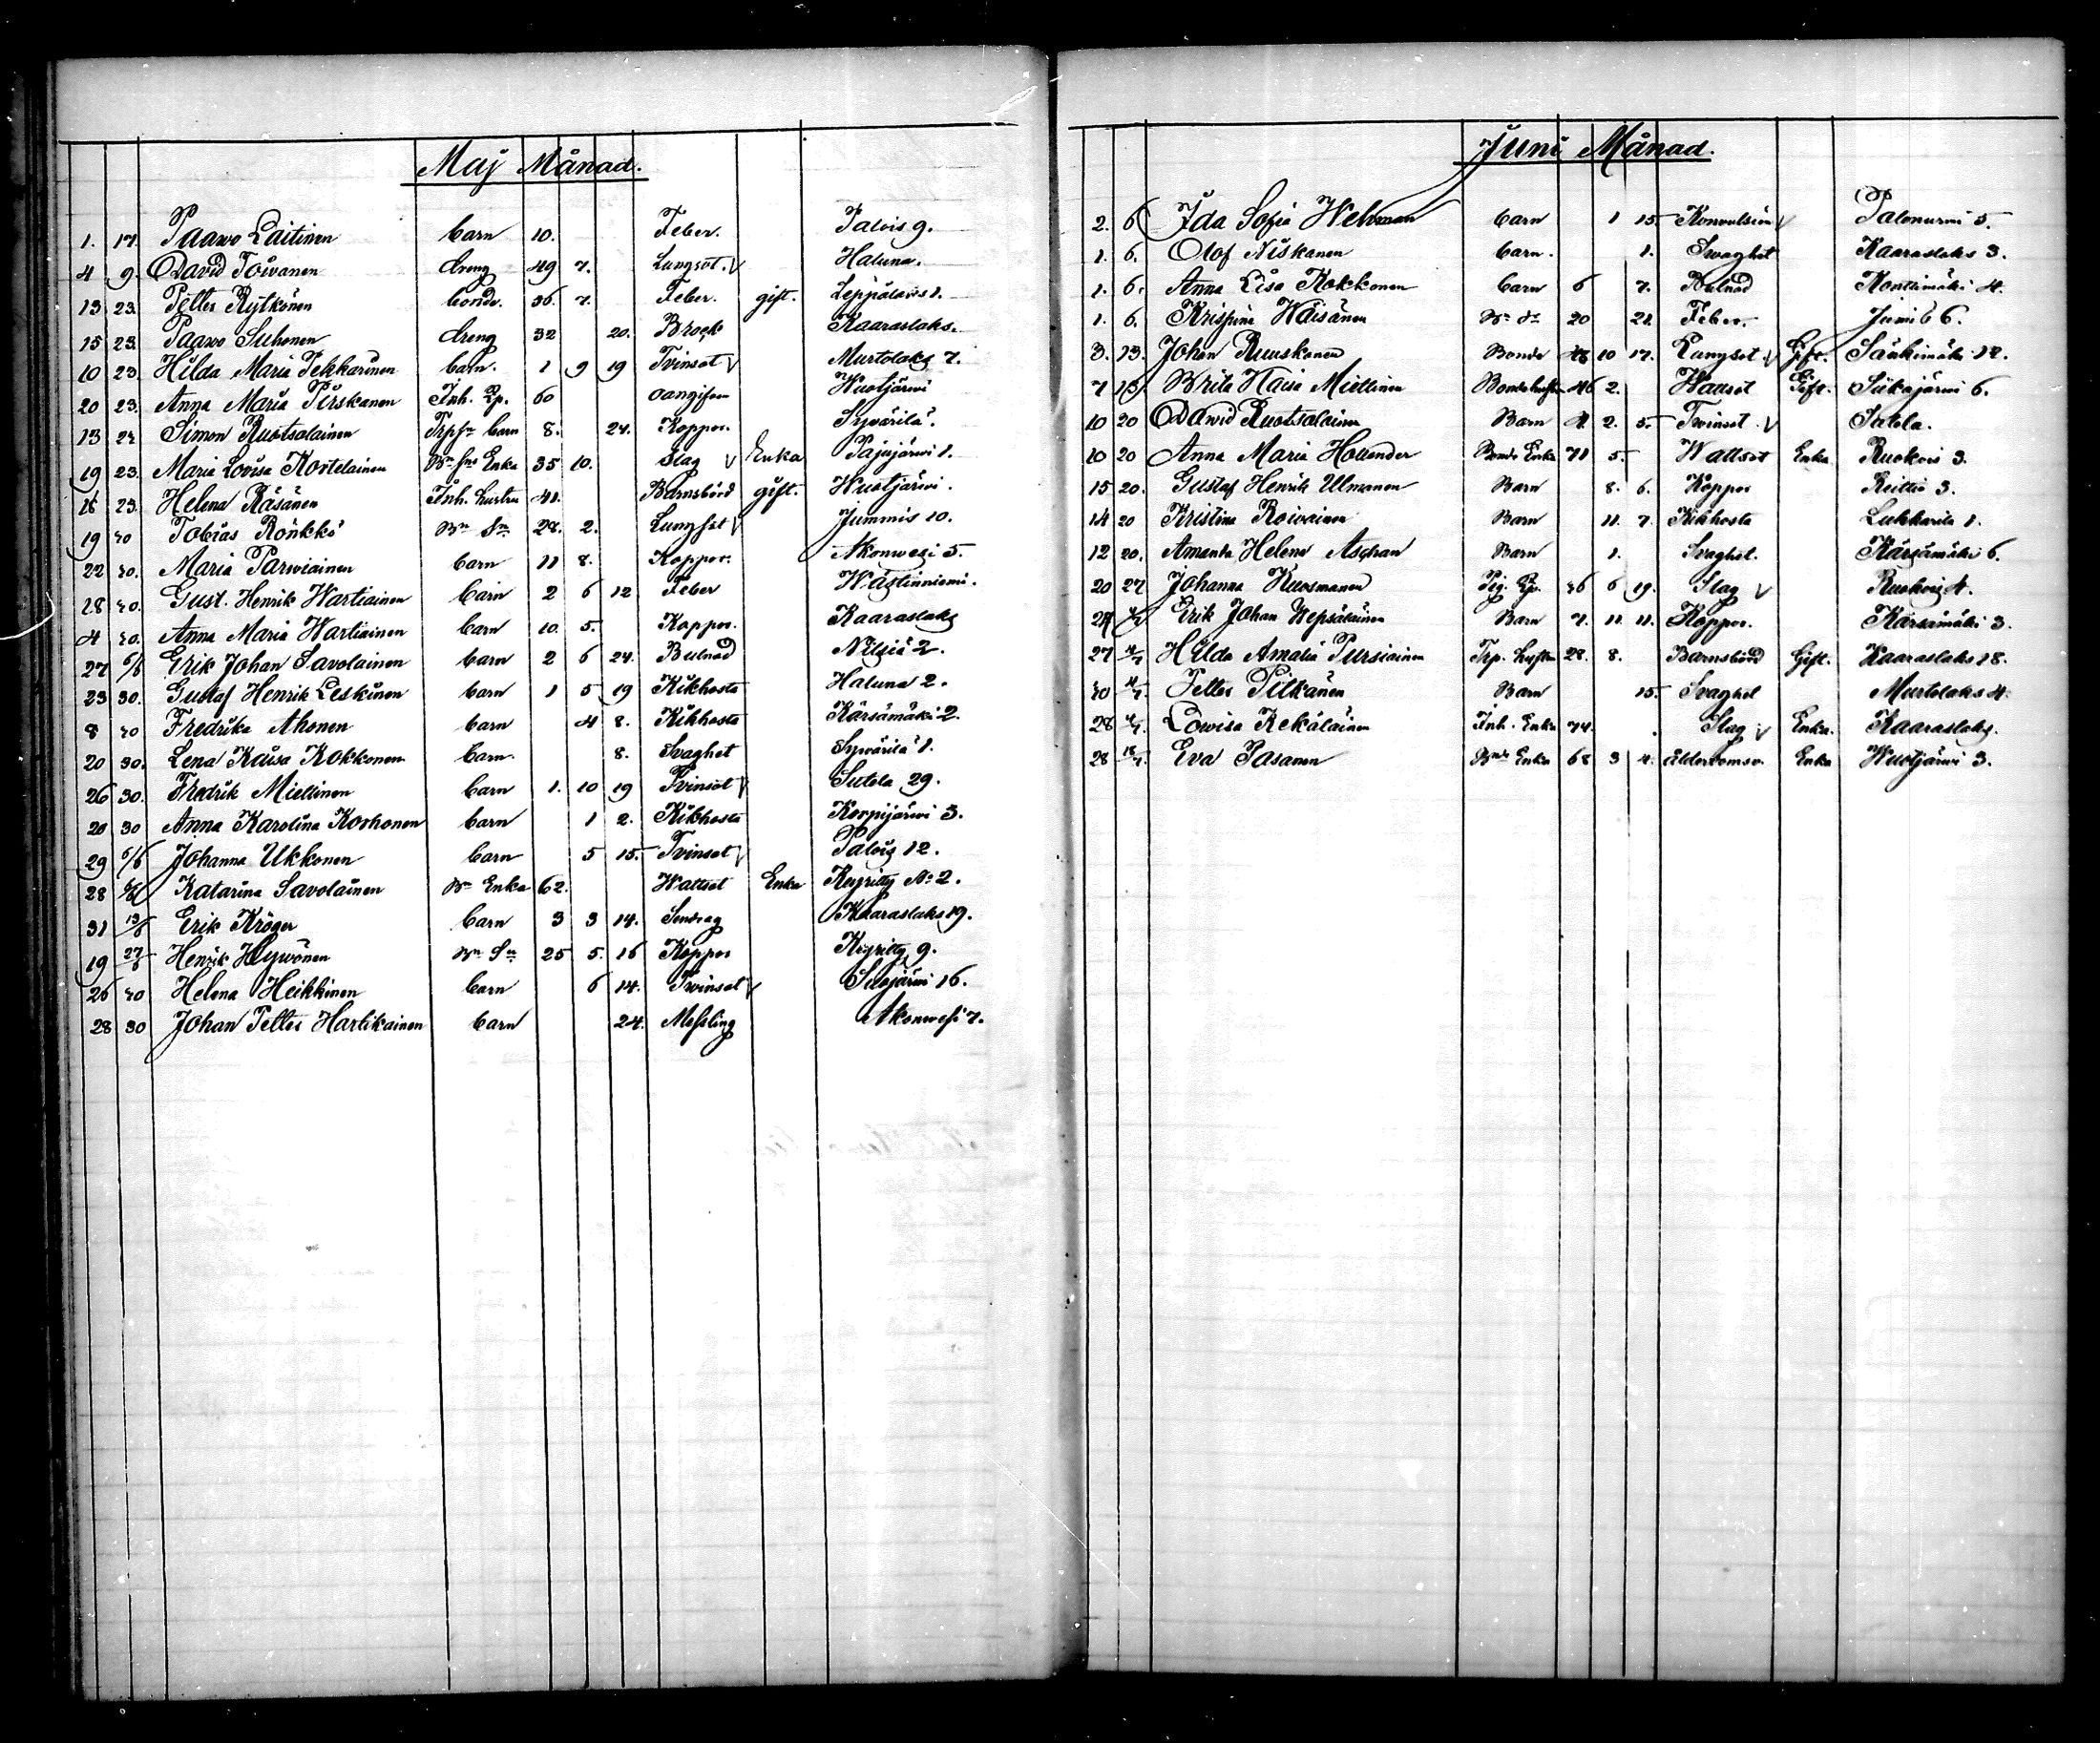 Maj Månad.
1. 17. Paavo Laitinen barn 10. Feber. Palois 9.
4 9. David Toivanen dreng 49 7. Lungsot. V Haluna.
13 23. Petter Rytkönen bonde. 36 7. Feber. gift. Leppälaks 1.
15 23. Paavo Suhonen dreng 32 20. Bråck Kaaraslaks.
10 23. Hilda Maria Pekkarinen barn. 1 9 19 Tvinsot V Murtolaks 7.
20 23. Anna Maria Pirskanen Inh. Pp. 60 oangifven Wuotjärvi
13 23. Simon Ruotsalainen Trpsn barn 8. 24. Koppor. Syvärilä.
19 23. Maria Lovisa Kortelainen Bn sns Enka 35 10. Slag V Enka Pajujärvi 1.
18 23. Helena Räsänen Inh. hustru 41. Barnsbörd gift. Wuotjärvi.
19 30 Tobias Rönkkö Bn Sn 28. 2. Lungsot V Jummis 10.
22 30. Maria Parviainen barn 11 8. Koppor. Akonwesi 5.
28 30. Gust. Henrik Wartiainen barn 2 6 12 Feber Wästinniemi.
4 30. Anna Maria Wartiainen barn 10. 5. Koppor. Kaaraslaks
27 6/6 Erik Johan Savolainen barn 2 6 24. Bulnad Nilsiä 2.
23 30. Gustaf Henrik Leskinen barn 1 5 19 Kikhosta Haluna 2.
8 30 Fredrika Ahonen barn 4 8. Kikhosta Kärsämäki 2.
20 30. Lena Kaisa Kokkonen barn. 8. Svaghet Syvärilä 1.
26 30. Fredrik Miettinen barn 1. 10 19 Tvinsot V Sutela 29.
20 30 Anna Karolina Korhonen barn 1 2. Kikhosta Korpijärvi 3.
29 6/6 Johanna Ukkonen barn 5 15. Tvinsot V Palois 12.
28 6/6 Katarina Savolainen Bn Enka 62. Wattsot Enka Keyritty No 2.
31 13/6 Erik Kröger barn 3 3 14. Sendrag Kaaraslaks 19.
19 27/6 Henrik Hyvönen Bn Sn 25 5. 16 Koppor Keyritty 9.
26 30 Helena Heikkinen barn 6 14. Tvinsot V Suojärvi 16.
28 30 Johan Petter Hartikainen barn 24. Messling Akonwesi 7.
Juni Månad.
2. 6 Ida Sofia Wehman barn 1 15. Konvulsion V Palonurmi 5.
1. 6. Olof Niskanen barn. 1. Svaghet Kaaraslaks 3.
1. 6. Anna Lisa Kokkonen barn 6 7. Bulnad Konttimäki 4.
1. 6. Krispina Wäisänen Bn dr 20 21. Feber. 6.
3. 13. Johan Ruuskanen Bonde 48 10 17. Lungsot V Gift. Sänkimäki 12.
7 13 Brita Kaisa Miettinen Bondehustru 46 2. Wattsot Gift. Siikajärvi 6.
10 20 David Ruotsalainen Barn 4. 2. 5. Tvinsot V Sutela.
10 20 Anna Maria Hollender Bonde Enka 71 5. Wattsot Enka Ruokois 3.
15 20. Gustaf Henrik Ulmanen Barn 8. 6. Koppor Reittiö 3.
14 20 Kristina Roivainen Barn 11. 7. Kikhosta Lukkarila 1.
12 20. Amanda Helena Aschan Barn 1. Svaghet. Kärsämäki 6.
20 27 Johanna Kuosmanen Pig. Pp. 36 6 19. Slag V Ruokois 4.
24 4/7 Erik Johan Hepsäläinen Barn 7. 11. 11. Koppor. Kärsämäki 3.
27 4/7 Hilda Amalia Pursiainen Trp. hustru 28. 8. Barnsbörd Gift. Kaaraslaks 18.
30 4/7 Petter Pitkänen Barn 15. Svaghet Murtolaks 4.
28 4/7. Lovisa Rekäläinen Inh. Enka 74. Slag V Enka. Kaaraslaks.
28 18/7. Eva Pasanen Bnde Enka 68 3 4. ålderdomsv. Enka Wuotjärvi 3.